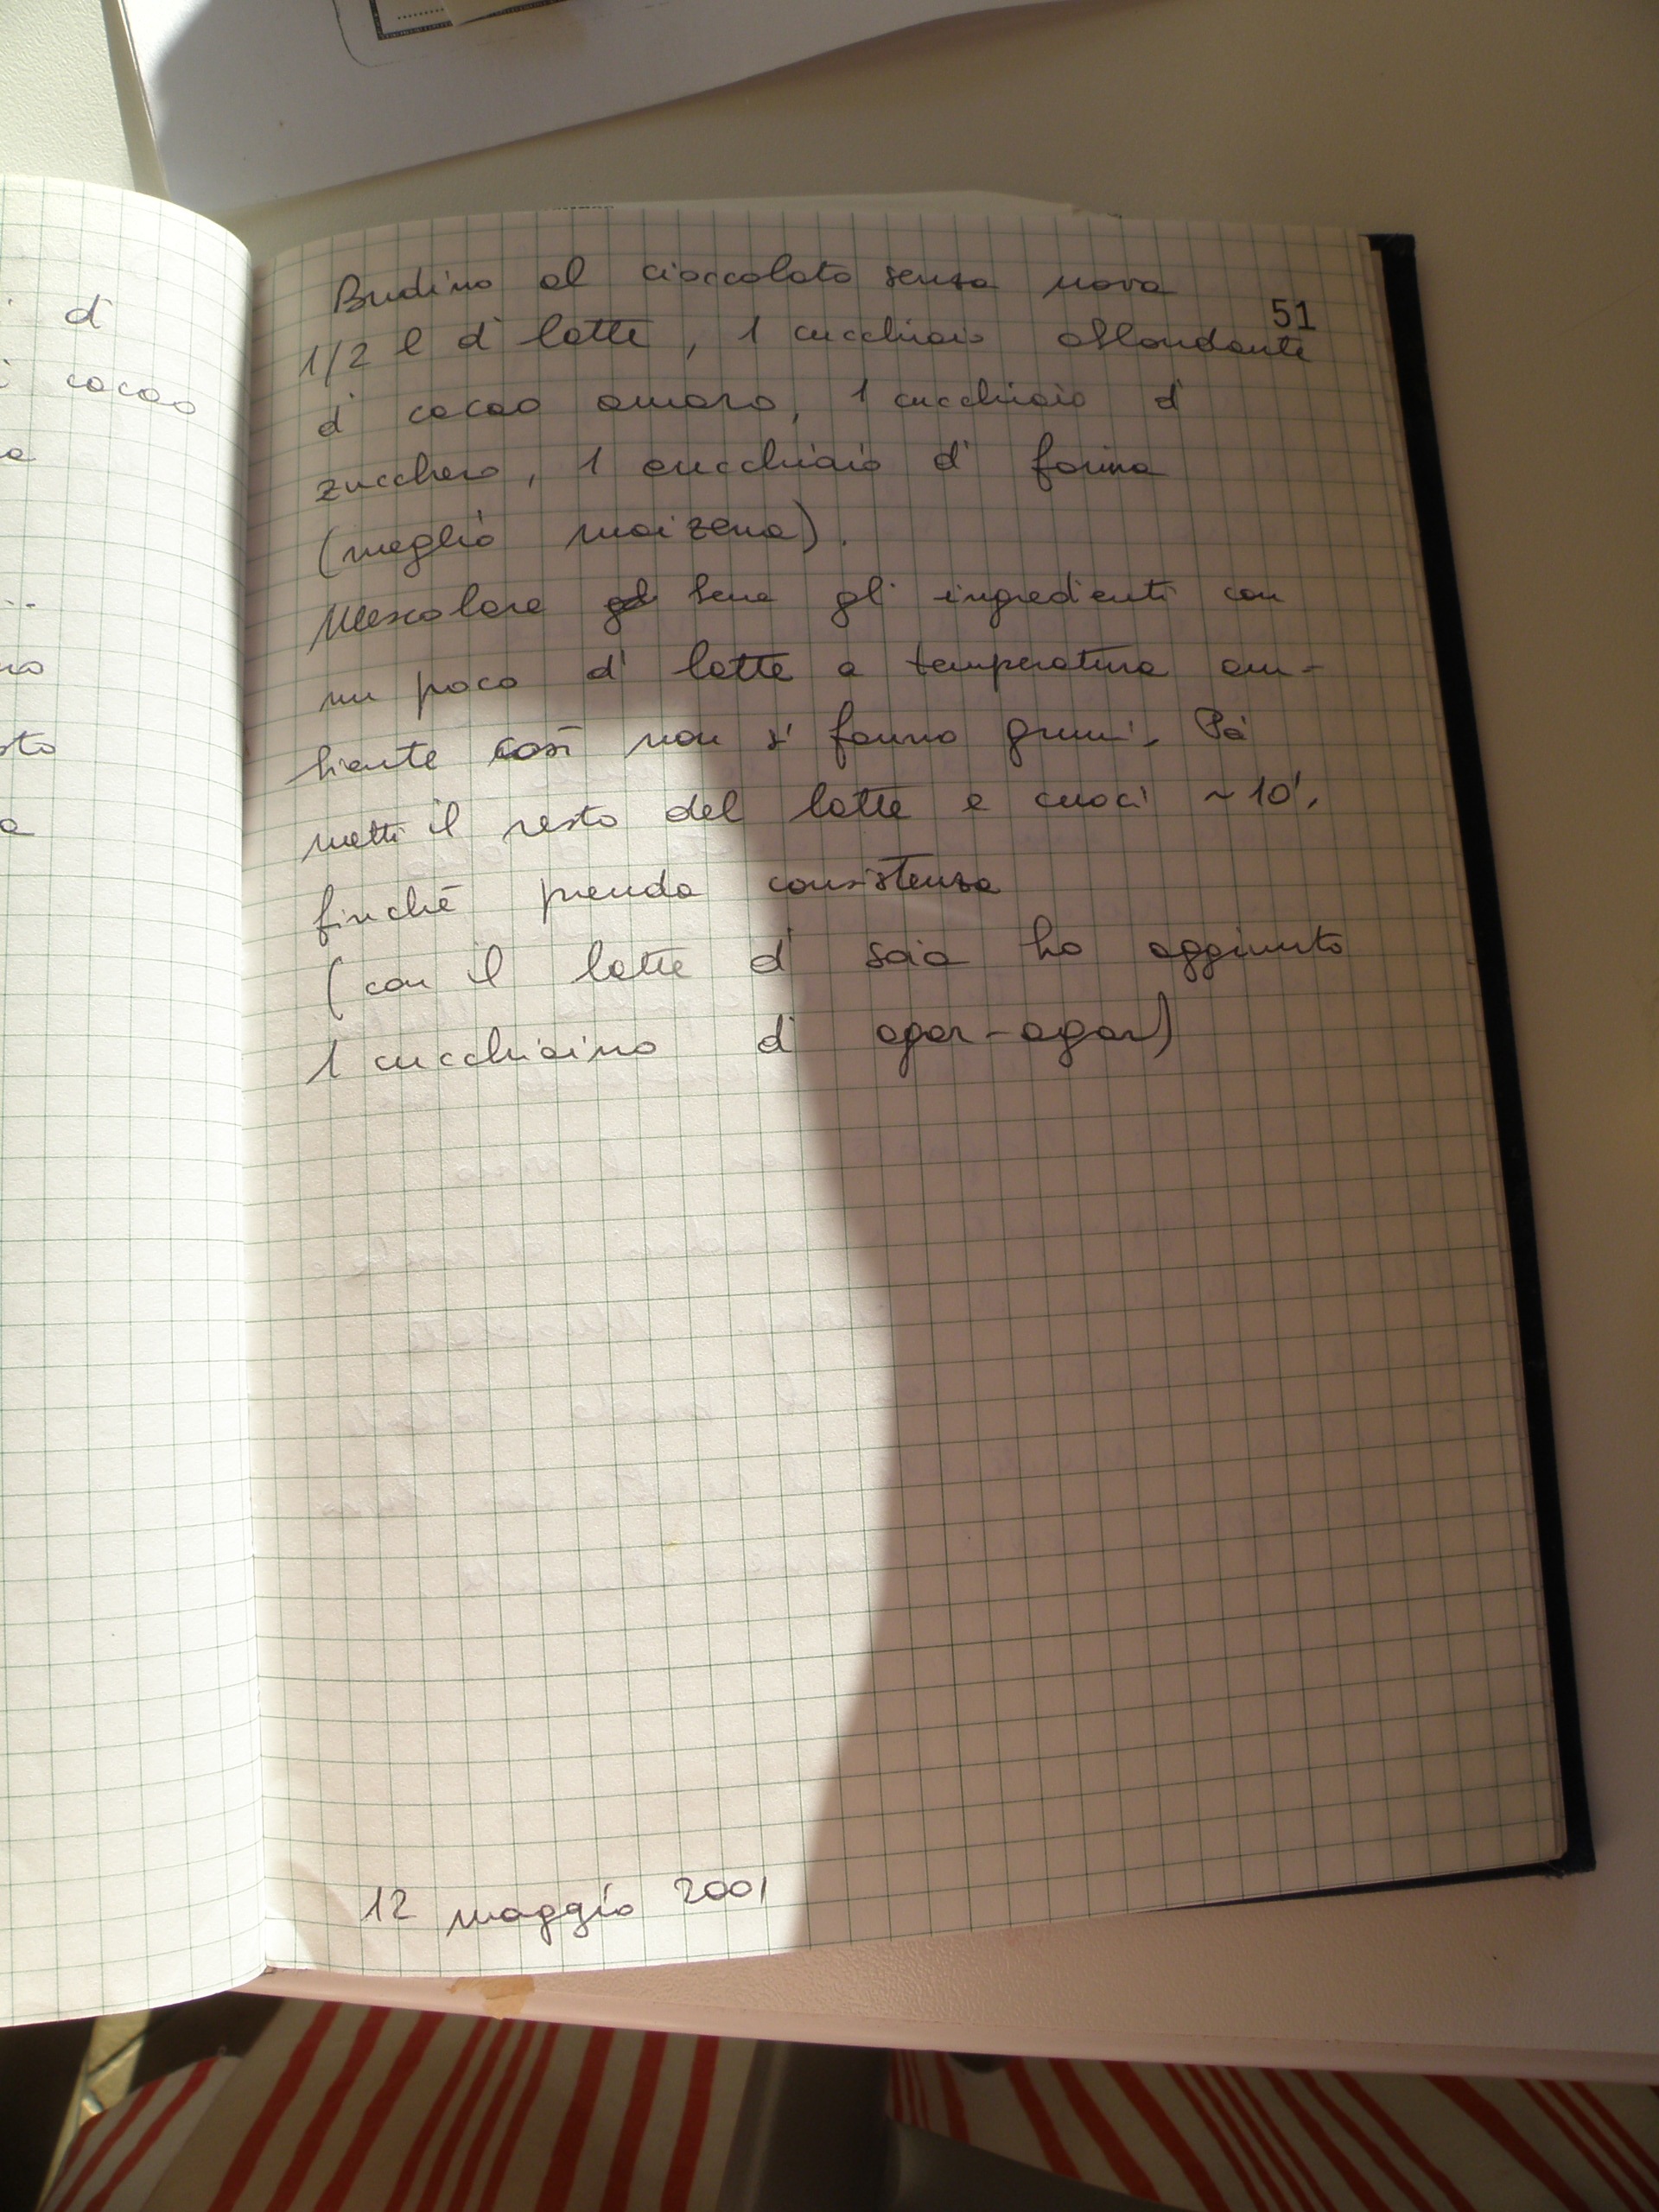 i di
i cacao
sto
51
Budino al cioccolato senza uova
1/2 l di latte, 1 cucchiaio abbondante
di cacao amaro, 1 cucchiaio di
zucchero, 1 cucchiaio di farina
(meglio maizena).
Mescolare bene gli ingredienti con
un poco di latte a temperatura am-
biente così non si fanno grumi. Poi
metti il resto del latte e cuoci ~10',
finché prenda consistenza
(con il latte di soia ho aggiunto
1 cucchiaino di agar-agar)
12 maggio 2001